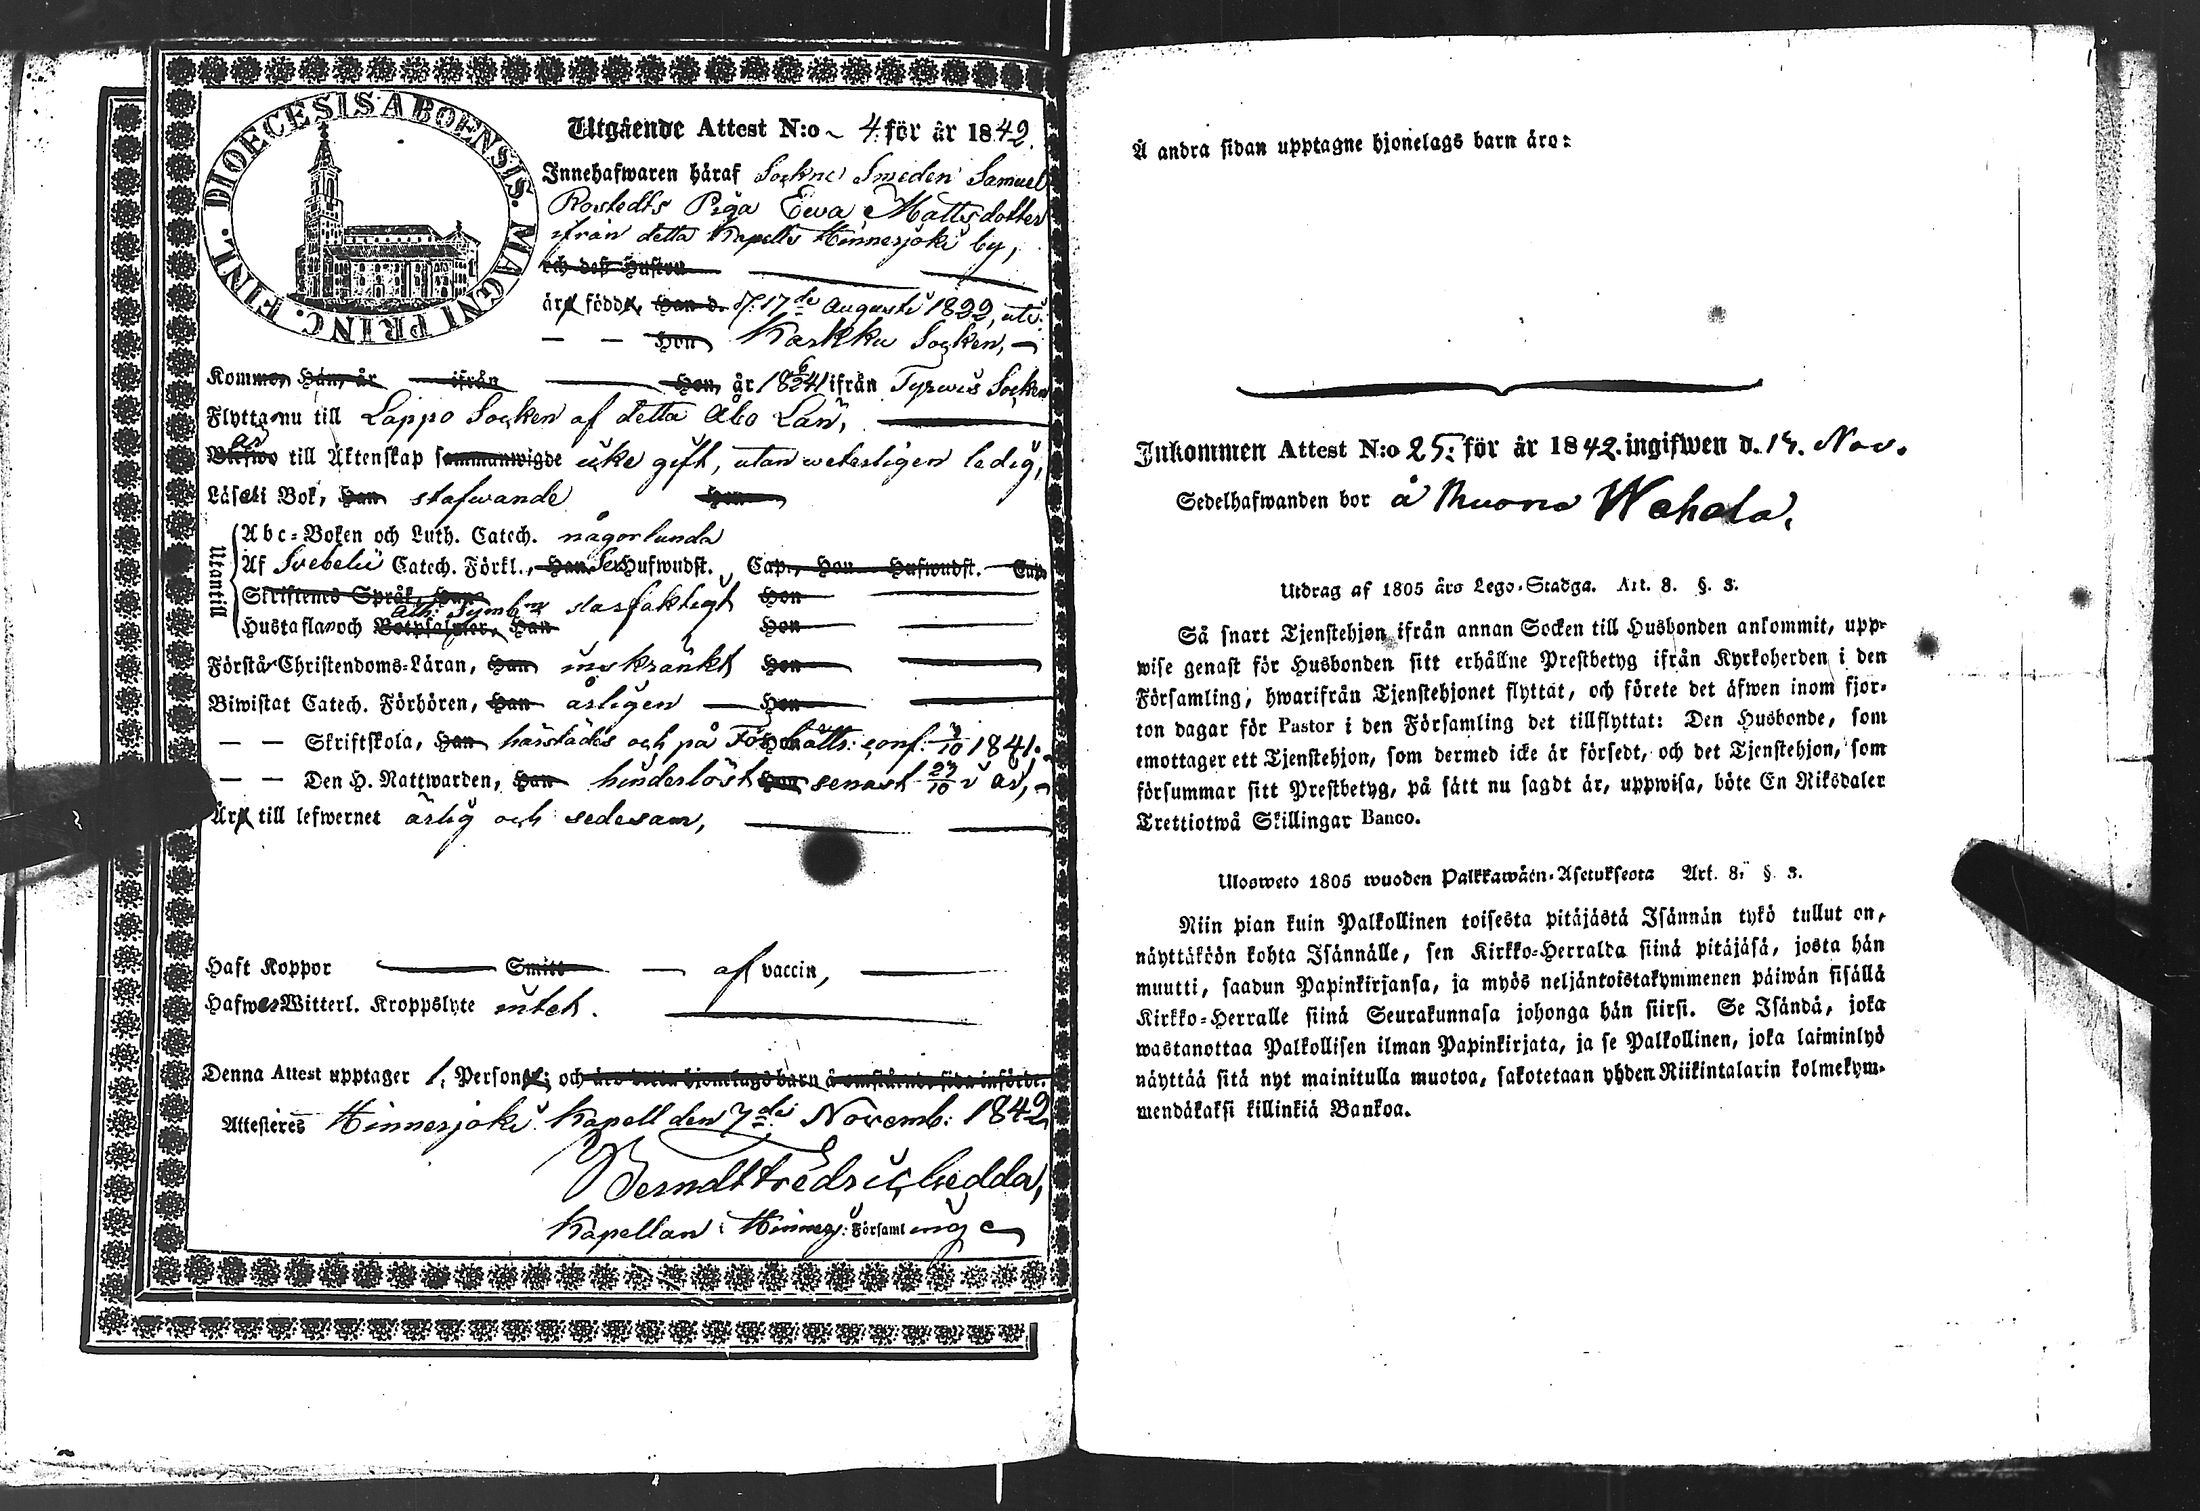 DIOECESIS ABOENSIS. MAGNI PRINC. FINL.
Utgående Attest N:o 4. för år 1842.
Innehafwaren häraf Sockne Smeden Samuel
Rostedts Piga Ewa Mattsdotter
ifrån detta Kapells Hinnerjoki by,
och dess Hustru
äro födde, Han d. d. 17de Augusti 1822, uti
— — Hon Karkku Socken,
Kommo, Han, år ifrån Hon, år 1841 ifrån Tyrwis Socken
Flytta nu till Lappo Socken af detta Åbo Län,
till Äktenskap sammanwigde icke gift, utan weterligen ledig,
Läsa i Bok, Han stafwande Hon
Utantill
Abc-Boken och Luth. Catech. någorlunda
Af Svebelii Catech. Förkl., Han Hufwudst. Cap., Hon Hufwudst. Cap.
Skriftenes Språk, Han Hon
Ath. Symb. slarfaktigt
Hustaflan och Botpsalmer, Han Hon
Förstå Christendoms-Läran, Han inskränkt Hon
Biwistat Catech. Förhören, Han årligen Hon
— — Skriftskola, Han härstädes och på 1841.
— — Den H. Nattwarden, Han hinderlöst Hon senast 23/10 i år,
Äro till lefwernet ärlig och sedesam,
Haft Koppor Smitt af vaccin,
Hafwer Witterl. Kroppslyte intet.
Denna Attest upptager 1, Person; och äro detta hjonelags barn å omstående sida införde.
Attesteres Hinnerjoki Kapell den 7de Novemb: 1842
Berndt Fredric Hedda,
Kapellan i Hinnerj: Församling
Å andra sidan upptagne hjonelags barn äro:
Inkommen Attest N:o 25: för år 1842. ingifwen d. 14. Nov.
Sedelhafwanden bor å Muona Wahala.
Utdrag af 1805 års Lego-Stadga. Art. 8. §. 3.
Så snart Tjenstehjon ifrån annan Socken till Husbonden ankommit, upp-
wise genast för Husbonden sitt erhållne Prestbetyg ifrån Kyrkoherden i den
Församling, hwarifrån Tjenstehjonet flyttat, och förete det äfwen inom fjor-
ton dagar för Pastor i den Församling det tillflyttat: Den Husbonde, som
emottager ett Tjenstehjon, som dermed icke är försedt, och det Tjenstehjon, som
försummar sitt Prestbetyg, på sätt nu sagdt är, uppwisa, böte En Riksdaler
Trettiotwå Skillingar Banco.
Ulosweto 1805 wuoden Palkkawäen-Asetuksesta Art. 8. § 3.
Niin pian kuin Palkollinen toisesta pitäjästä Isännän tykö tullut on,
näyttäköön kohta Isännälle, sen Kirkko-Herralda siinä pitäjäsä, josta hän
muutti, saadun Papinkirjansa, ja myös neljäntoistakymmenen päiwän sisällä
Kirkko-Herralle siinä Seurakunnasa johonga hän siirsi. Se Isändä, joka
wastanottaa Palkollisen ilman Papinkirjata, ja se Palkollinen, joka laiminlyö
näyttää sitä nyt mainitulla muotoa, sakotetaan yhden Riikintalarin kolmekym-
mendäkaksi killinkiä Bankoa.